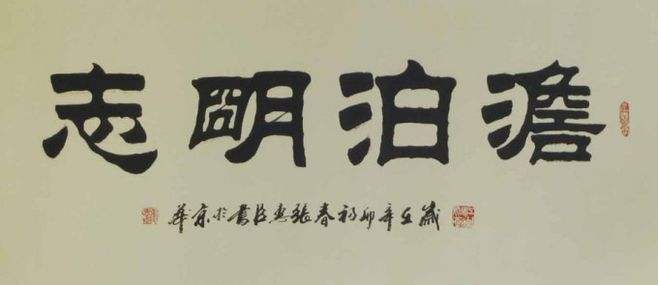 澹泊明志
歲在辛卯初春張惠臣書於京華